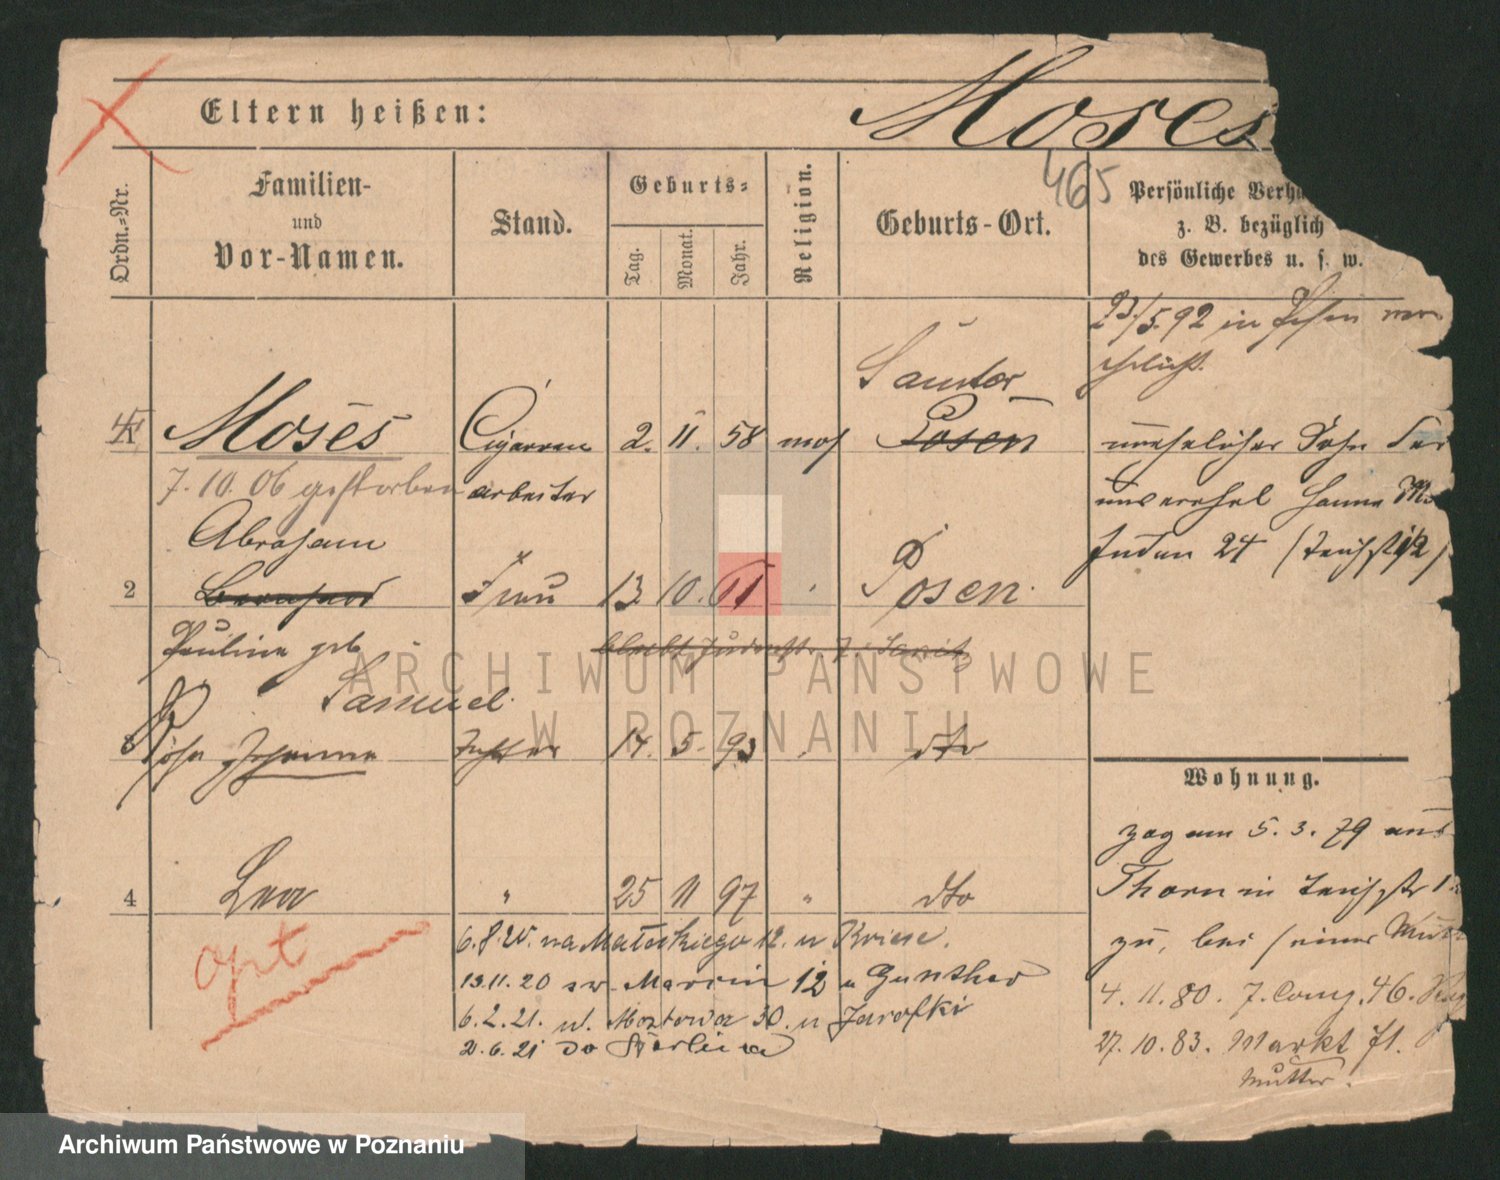 Eltern heißen:
Moses
465
Ordn.-Nr.
Familien-
und
Vor-Namen.
Stand.
Geburts-
Tag.
Monat.
Jahr.
Religion.
Geburts-Ort.
Persönliche Verh
z. B. bezüglich
des Gewerbes u. s. w.
23/5.92 in Posen ver
ehelicht.
Samter
Moses Cigarren 2. 11 58 mos Posen
unehelicher Sohn der
7.10.06 gestorben arbeiter
unverehel Hanna
Abraham
Juden 24
2 Bernhard Frau 13. 10. 61 " Posen.
Pauline geb
Samuel.
3 Rosa Johanna Tochter 14. 5. 93 " dto
Wohnung.
zog am 5.3.79 aus
Thorn in
4 Lea " 25 11 97 " dto
zu, bei seiner Mutt
opt
6.8.20. na Matejkiego 12. u Kriese.
13.11.20 sw. Marcin 12 u Gunther
4.11.80. 7. 46.
6.2.21. ul. Mostowa 30. u Jarofki
27.10.83. Markt 71.
2.6.21 do Berlina
Mutter.
ARCHIWUM PAŃSTWOWE
W POZNANIU
Archiwum Państwowe w Poznaniu